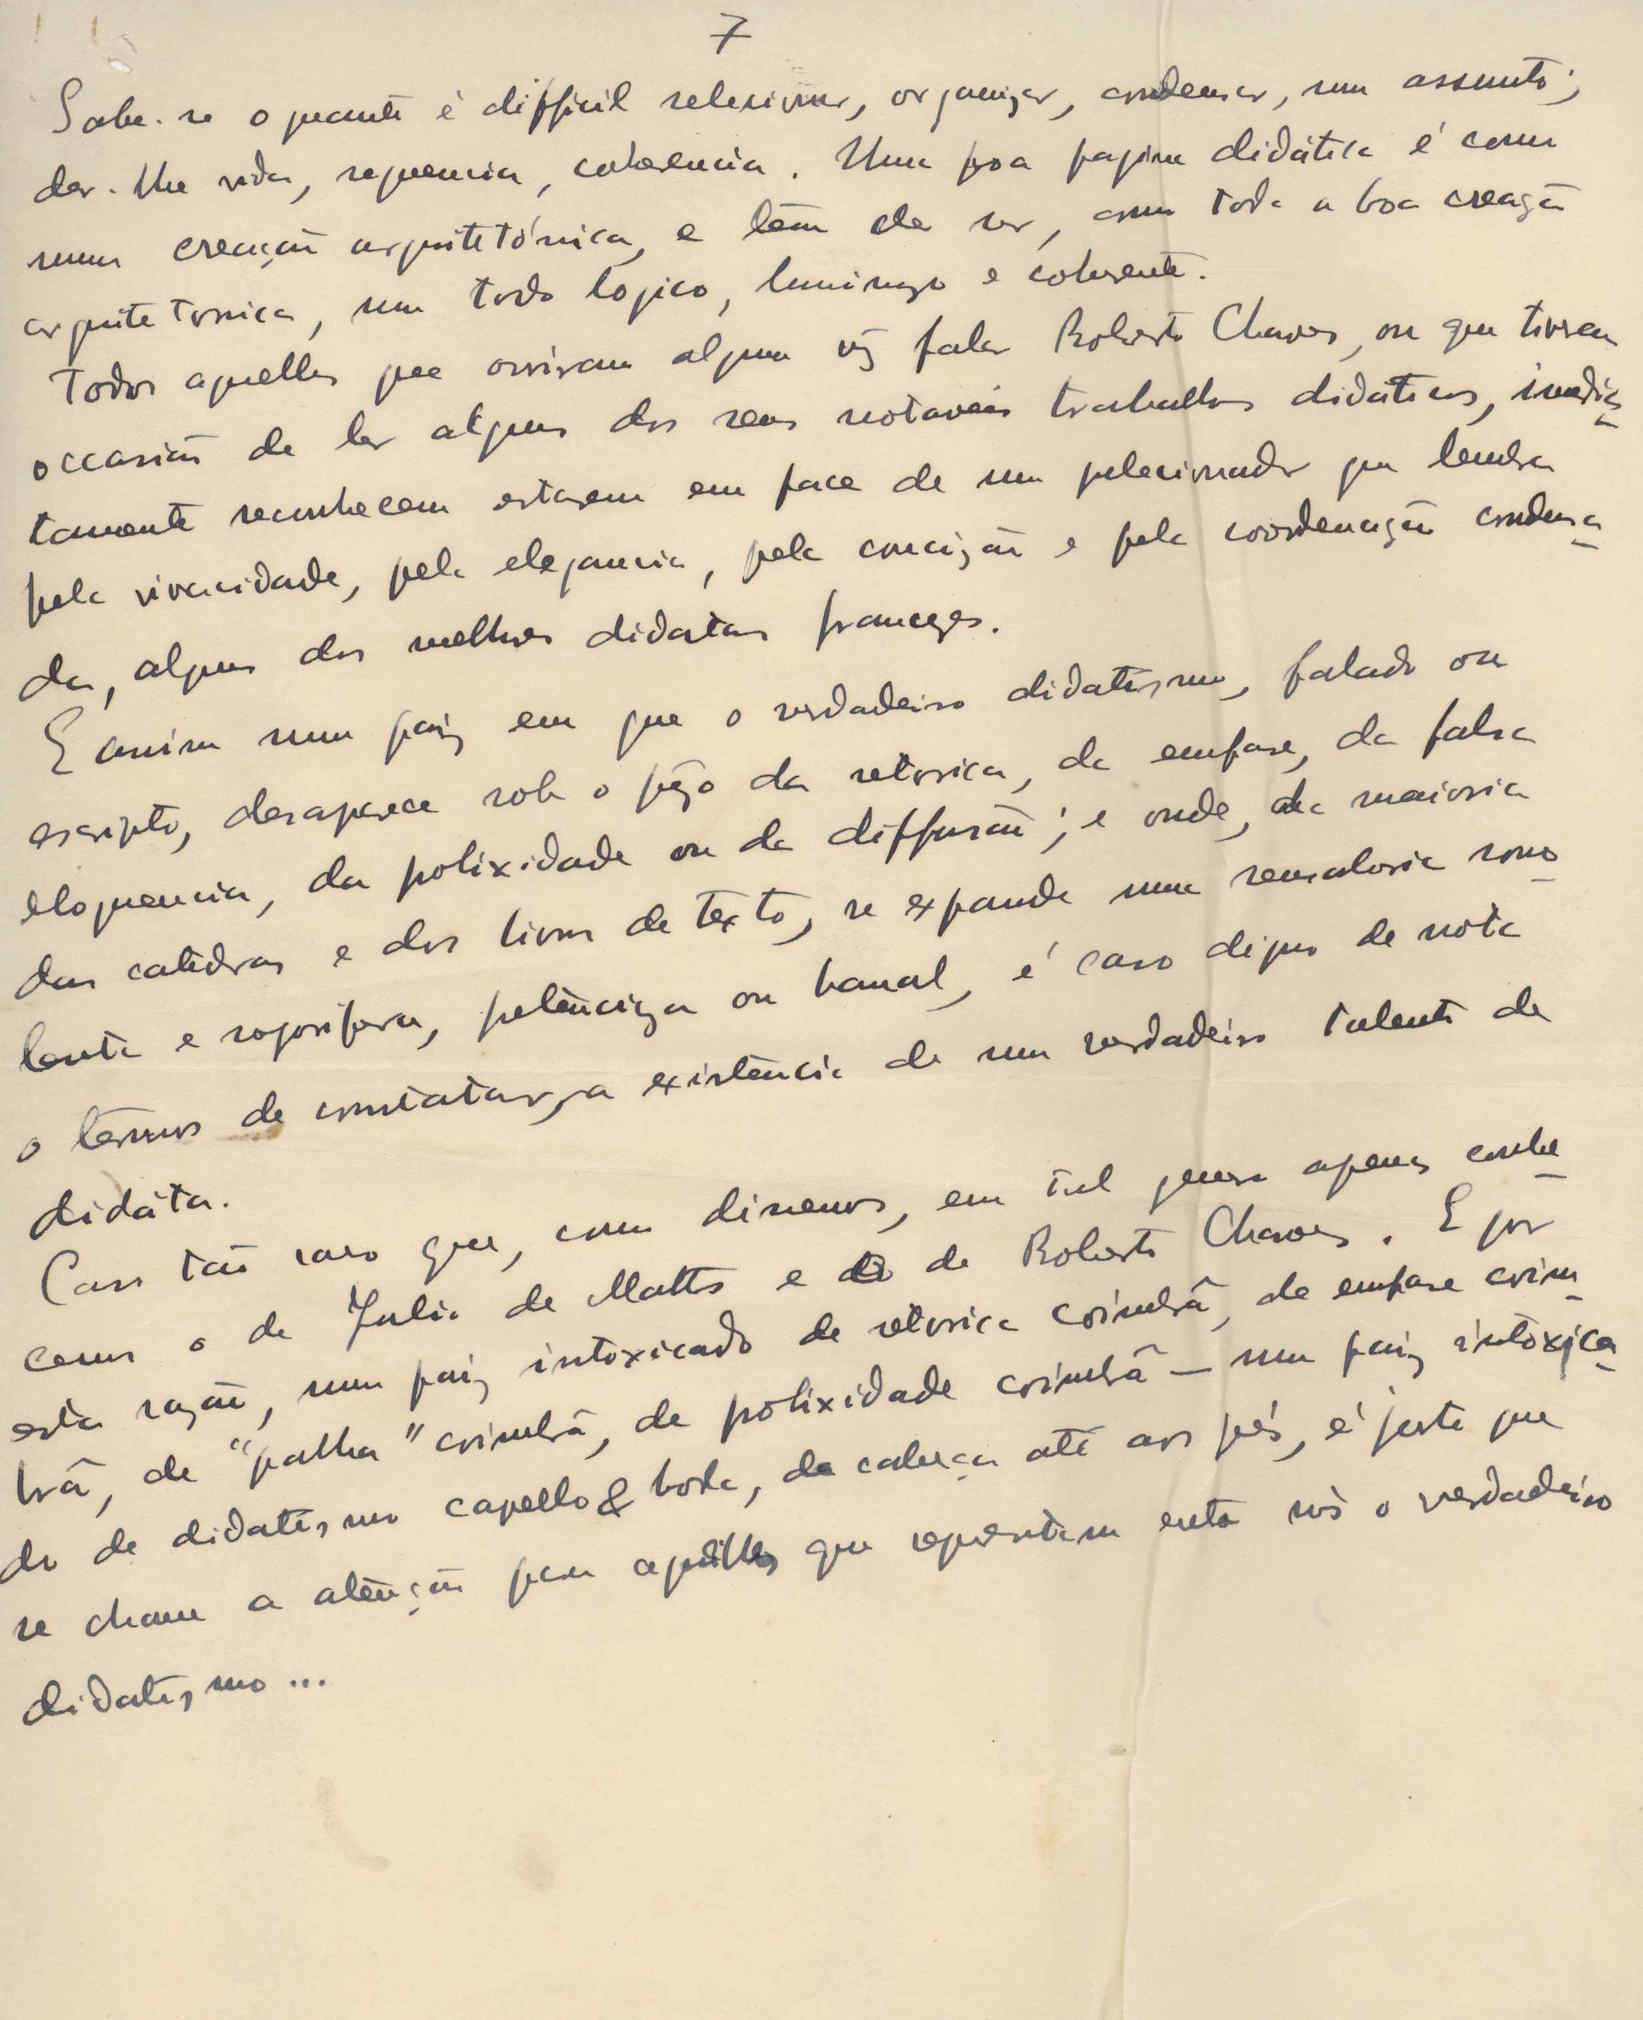 7
Sabe-se o quanto é difficil selecionar, organizar, condensar, um assunto;
dar-lhe vida, sequencia, coherencia. Uma boa pagina didática é como
uma creação arquitetónica, e têm de ser, como toda a boa creação
arquitetonica, um todo logico, luminozo e coherente.
Todos aquelles que ouviram alguma vêz falar Roberto Chaves, ou que tiveram
occasião de ler alguns dos seus notaveis trabalhos didáticos, imedia-
tamente reconhecem estarem em face de um prelecionador que lembra
pela vivacidade, pela elegancia, pela concizão e pela coordenação condensa-
da, alguns dos melhores didatas francezes.
E assim num paiz em que o verdadeiro didatismo, falado ou
escripto, desaparece sob o pêzo da retorica, da emfase, da falsa
eloquencia, da polixidade ou da diffusão; e onde, da maioria
das catedras e dos livros de texto, se expande uma sensaboria sono-
lenta e soporifera, pretencioza ou banal, é caso digno de nota
o têrmos de constatar, a existência de um verdadeiro talento de
didáta.
Caso tão raro que, como dissemos, em tal genero apenas conhe-
cemos o de Julio de Mattos e o de Roberto Chaves. E por
esta razão, num paiz intoxicado de retorica coimbrã, de emfase coim-
brã, de "palha" coimbrã, de polixidade coimbrã – num paiz intoxica-
do de didatismo capello & borla, da cabeça até aos pés, é justo que
se chame a atenção para aquelles que representam entre nós o verdadeiro
didatismo...